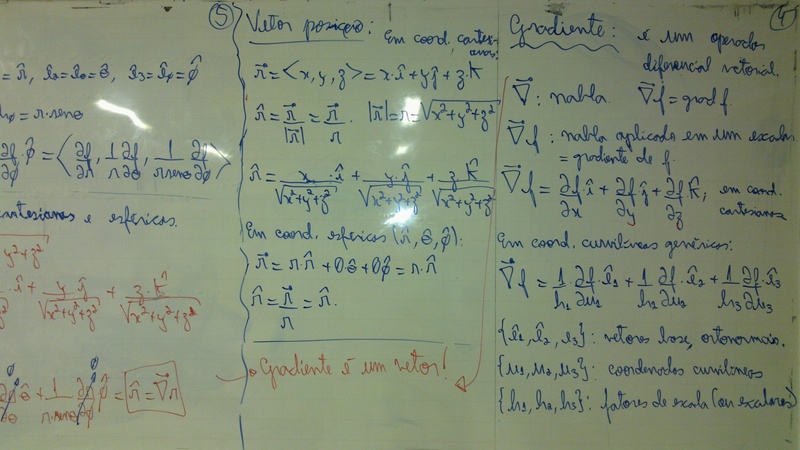 ⑤
= r̂, ê₂=ê_θ=θ̂, ê₃=ê_φ=φ̂
h_φ = r.senθ
∂f/∂φ.φ̂ = <∂f/∂r, 1/r ∂f/∂θ, 1/(r senθ) ∂f/∂φ>
cartesianas e esféricas.
y²+z²
.î + y.ĵ/√(x²+y²+z²) + z.k̂/√(x²+y²+z²)
θ̂ + 1/(r.senθ) ∂r/∂φ φ̂ = r̂ = ∇⃗r
Vetor posição: Em coord. cartesianas:
r⃗ = <x, y, z> = x.î + yĵ + z.k̂
r̂ = r⃗/|r⃗| = r⃗/r. |r⃗| = r = √(x²+y²+z²)
r̂ = x.î/√(x²+y²+z²) + y.ĵ/√(x²+y²+z²) + z.k̂/√(x²+y²+z²)
Em coord. esféricas (r̂, θ̂, φ̂):
r⃗ = r.r̂ + 0θ̂ + 0φ̂ = r.r̂
r̂ = r⃗/r = r̂.
Gradiente é um vetor!
④
Gradiente: é um operador
diferencial vetorial.
∇⃗: nabla. ∇⃗f = grad f.
∇⃗f: nabla aplicado em um escalar
= gradiente de f.
∇⃗f = ∂f/∂x î + ∂f/∂y ĵ + ∂f/∂z k̂, em coord.
cartesianas
Em coord. curvilíneas genéricas:
∇⃗f = 1/h₁ ∂f/∂u₁.ê₁ + 1/h₂ ∂f/∂u₂.ê₂ + 1/h₃ ∂f/∂u₃.ê₃
{ê₁, ê₂, ê₃}: vetores base, ortonormais.
{u₁, u₂, u₃}: coordenadas curvilíneas
{h₁, h₂, h₃}: fatores de escala (ou escalares)